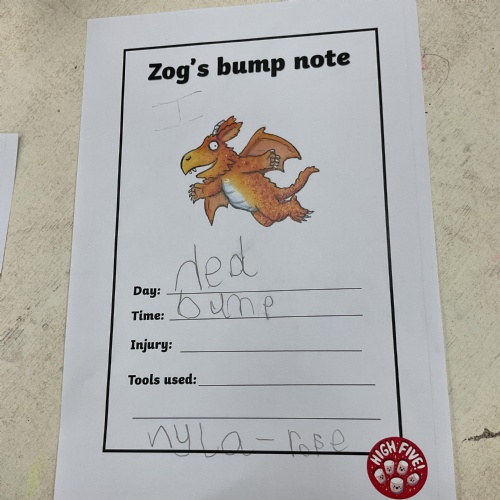 Zog's bump note
I
Day: hed
Time: bump
Injury:
Tools used:
nyla-rose
HIGH FIVE!